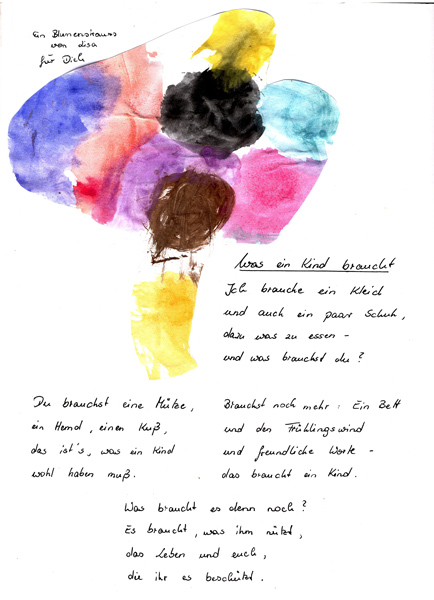 Ein Blumenstrauss
von Lisa
für Dich
Was ein Kind braucht
Ich brauche ein Kleid
und auch ein paar Schuh,
dazu was zu essen –
und was brauchst du?
Du brauchst eine Mütze,
ein Hemd, einen Kuß,
das ist's, was ein Kind
wohl haben muß.
Brauchst noch mehr: Ein Bett
und den Frühlingswind
und freundliche Worte –
das braucht ein Kind.
Was braucht es denn noch?
Es braucht, was ihm nützt,
das Leben und euch,
die ihr es beschützt.